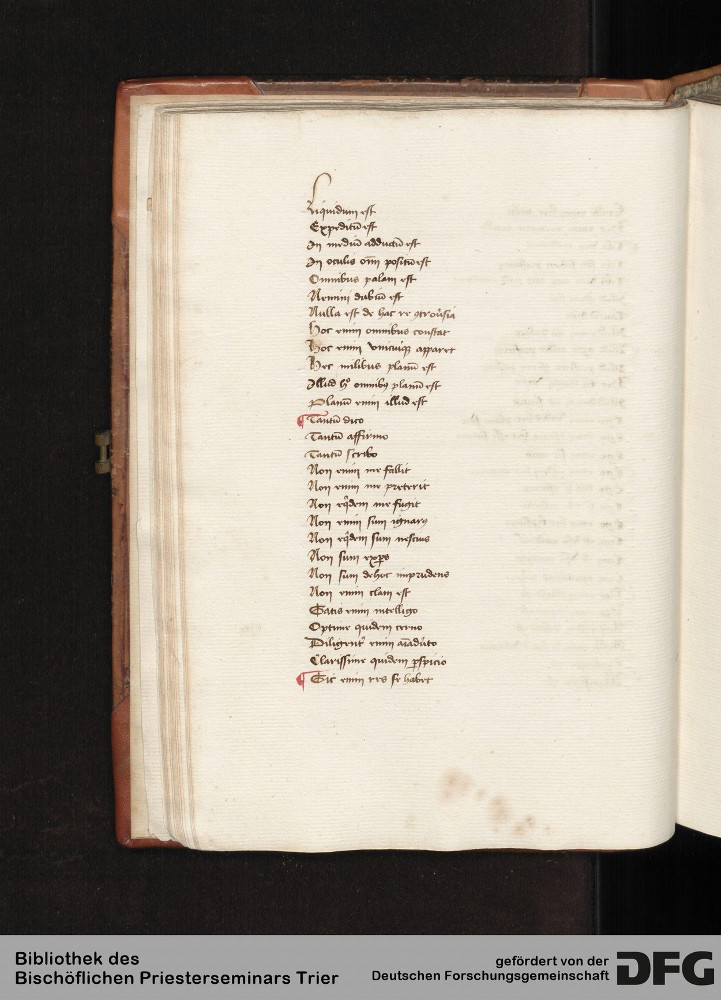 Liquidum est
Expeditū est
In mediū adductū est
In oculis om̄i positū est
Omnibus palam est
Nemini dubiū est
Nulla est de hac re ꝯtrou͛sia
Hoc enim omnibus constat
Hoc enim vnicuiqꝫ apparet
Hec milibus planū est
Illud hͦ omnibꝰ planū est
Planū enim illud est
¶ Tantū dico
Tantū affirmo
Tantū scribo
Non enim me fallit
Non enim me preterit
Non eqͥdem me fugit
Non enim sum ignarꝰ
Non eqͥdem sum nescius
Non sum exꝑs
Non sum de hoc imprudens
Non enim clam est
Satis enim intelligo
Optime quidem cerno
Diligent͛ enim aīaduͥto
Clarissime quidem ꝑspicio
¶ Sic enim res se habet
Bibliothek des
Bischöflichen Priesterseminars Trier
gefördert von der
Deutschen Forschungsgemeinschaft
DFG